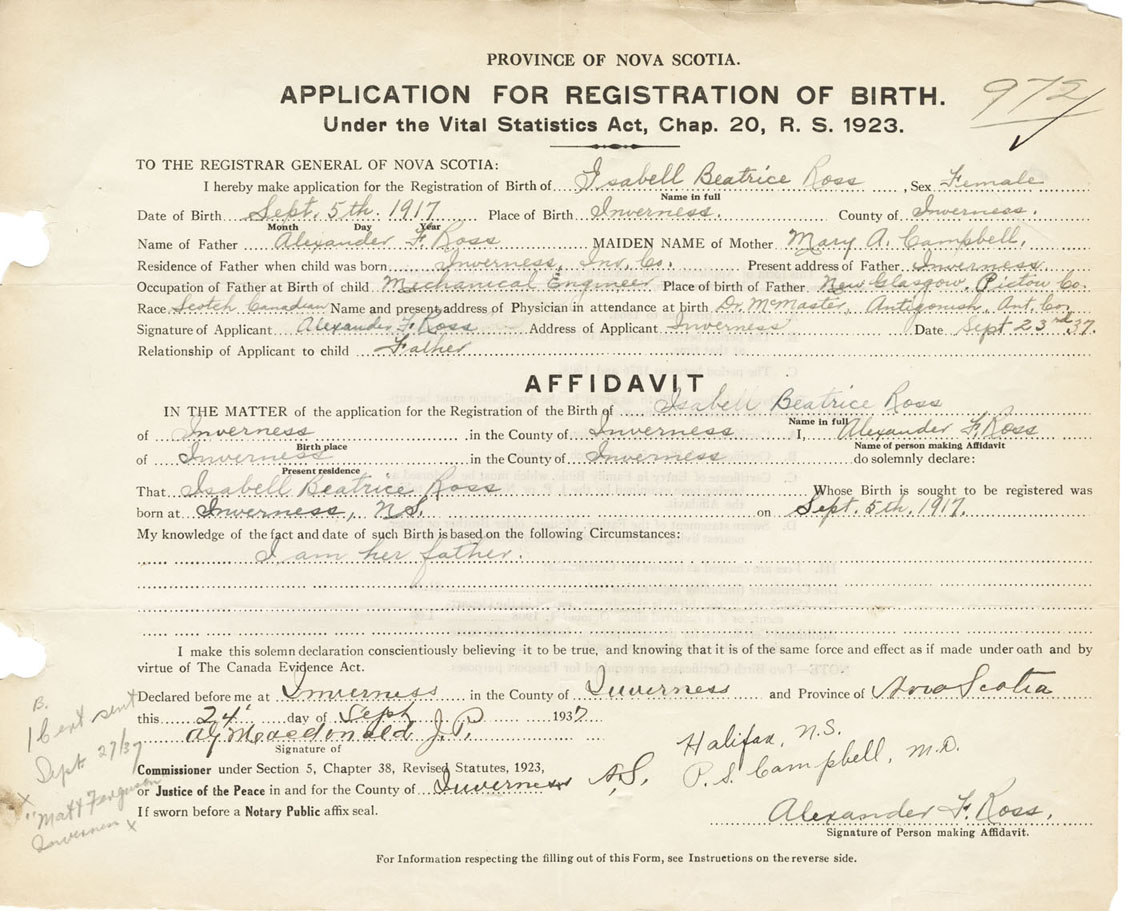 PROVINCE OF NOVA SCOTIA.
APPLICATION FOR REGISTRATION OF BIRTH.
972
Under the Vital Statistics Act, Chap. 20, R. S. 1923.
TO THE REGISTRAR GENERAL OF NOVA SCOTIA:
I hereby make application for the Registration of Birth of Isabell Beatrice Ross, Sex Female
Name in full
Date of Birth Sept. 5th. 1917 Place of Birth Inverness. County of Inverness.
Month Day Year
Name of Father Alexander F. Ross MAIDEN NAME of Mother Mary A. Campbell.
Residence of Father when child was born Inverness, Inv. Co. Present address of Father Inverness.
Occupation of Father at Birth of child Mechanical Engineer Place of birth of Father. New Glasgow, Pictou Co.
Race Scotch Canadian Name and present address of Physician in attendance at birth Dr. McMaster, Antigonish, Ant. Co.
Signature of Applicant Alexander F. Ross Address of Applicant Inverness Date Sept 23rd, 37.
Relationship of Applicant to child Father
AFFIDAVIT
IN THE MATTER of the application for the Registration of the Birth of Isabell Beatrice Ross
Name in full
of Inverness in the County of Inverness I, Alexander F. Ross
Birth place Name of person making Affidavit
of Inverness in the County of Inverness do solemnly declare:
Present residence
That Isabell Beatrice Ross Whose Birth is sought to be registered was
born at Inverness, N.S. on Sept. 5th. 1917.
My knowledge of the fact and date of such Birth is based on the following Circumstances:
I am her father.
I make this solemn declaration conscientiously believing it to be true, and knowing that it is of the same force and effect as if made under oath and by
virtue of The Canada Evidence Act.
Declared before me at Inverness in the County of Inverness and Province of Nova Scotia
this 24' day of Sept 1937
Macdonald J.P.
Signature of
Halifax, N.S.
P.S. Campbell, M.D.
Commissioner under Section 5, Chapter 38, Revised Statutes, 1923,
or Justice of the Peace in and for the County of Inverness N.S.
If sworn before a Notary Public affix seal.
B.
1 Cert sent
Sept 27/37
x
"Matt Ferguson
Inverness x
Alexander F. Ross.
Signature of Person making Affidavit.
For Information respecting the filling out of this Form, see Instructions on the reverse side.